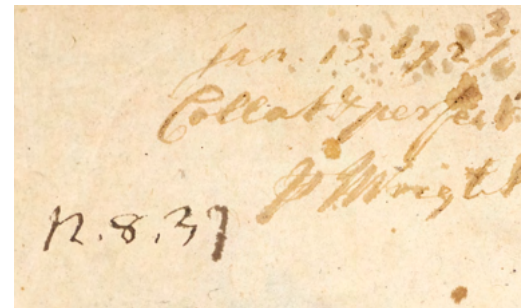 Jan. 13. 172
Collat & perfect
J Wright
8.37